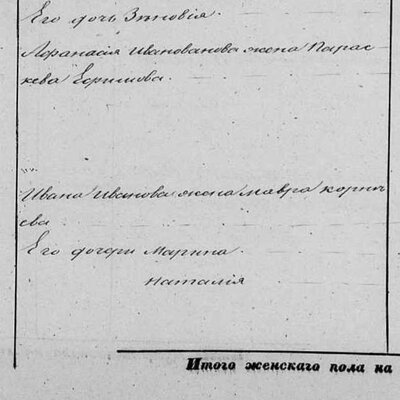 Его дочь Зѣновія.
Афанасія Иванованова жена Парас
кева Ефимова.
Ивана Иванова жена Мавра Корнѣ
ева
Его дочери Марина.
Наталія
Итого женскаго пола на